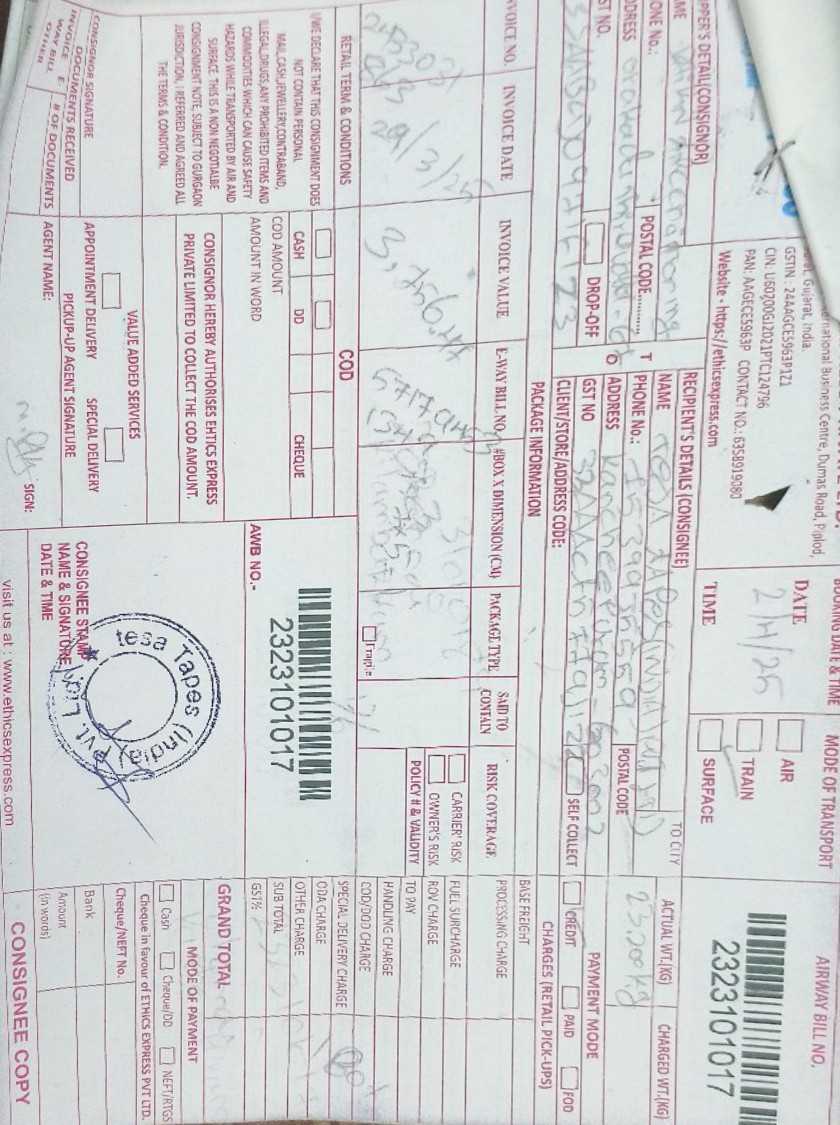 national Business Centre, Dumas Road, Piplod,
Gujarat, India.
GSTIN : 24AAGCE5963P1Z1
CIN: U60200GJ2021PTC124796
PAN: AAGECE5963P CONTACT NO.: 6358919080
Website - https://ethicsexpress.com
BOOKING DATE & TIME
DATE
2/4/25
TIME
MODE OF TRANSPORT
AIR
TRAIN
SURFACE
AIRWAY BILL NO.
2323101017
PPER'S DETAIL(CONSIGNOR)
AME
HONE No.:
DDRESS
POSTAL CODE............
ST NO.
DROP-OFF
RECIPIENT'S DETAILS (CONSIGNEE)
NAME
TO CITY
PHONE No.:
ADDRESS
POSTAL CODE
Kancheepuram - 603002
GST NO
SELF COLLECT
CLIENT/STORE/ADDRESS CODE:
ACTUAL WT.(KG)
CHARGED WT.(KG)
23.200 kg
PAYMENT MODE
CREDIT
PAID
FOD
PACKAGE INFORMATION
CHARGES (RETAIL PICK-UPS)
NVOICE NO.
INVOICE DATE
INVOICE VALUE
E-WAY BILL NO.
#BOX X DIMENSION (CM)
PACKAGE TYPE
SAID TO CONTAIN
RISK COVERAGE
29/3/25
3,756.47
Fragile
CARRIER' RISK
OWNER'S RISK
POLICY # & VALIDITY
BASE FREIGHT
PROCESSING CHARGE
FUEL SURCHARGE
ROV CHARGE
TO PAY
HANDLING CHARGE
COD/DOD CHARGE
SPECIAL DELIVERY CHARGE
ODA CHARGE
OTHER CHARGE
SUB TOTAL
GST%
GRAND TOTAL
RETAIL TERM & CONDITIONS
I/WE DECLARE THAT THIS CONSIGNMENT DOES
NOT CONTAIN PERSONAL
MAIL,CASH,JEWELLERY,CONTRABAND,
ILLEGAL DRUGS,ANY PROHIBITED ITEMS AND
COMMODITIES WHICH CAN CAUSE SAFETY
HAZARDS WHILE TRANSPORTED BY AIR AND
SURFACE. THIS IS A NON NEGOTIALBE
CONSIGNMENT NOTE, SUBJECT TO GURGAON
JURISDICTION, I REFERRED AND AGREED ALL
THE TERMS & CONDITION.
COD
CASH
DD
CHEQUE
COD AMOUNT
AMOUNT IN WORD
CONSIGNOR HEREBY AUTHORISES EHTICS EXPRESS
PRIVATE LIMITED TO COLLECT THE COD AMOUNT.
VALUE ADDED SERVICES
APPOINTMENT DELIVERY
SPECIAL DELIVERY
PICKUP-UP AGENT SIGNATURE
AGENT NAME:
SIGN:
CONSIGNOR SIGNATURE
DOCUMENTS RECEIVED
INVOICE
E WAY BILL
OTHER
# OF DOCUMENTS
AWB NO.-
2323101017
CONSIGNEE STAMP
NAME & SIGNATURE
DATE & TIME
tesa Tapes (India) Pvt. Ltd.
MODE OF PAYMENT
Cash
Cheque/DD
NEFT/RTGS
Cheque in favour of ETHICS EXPRESS PVT LTD.
Cheque/NEFT No.
Bank
Amount
(in words)
visit us at : www.ethicsexpress.com
CONSIGNEE COPY